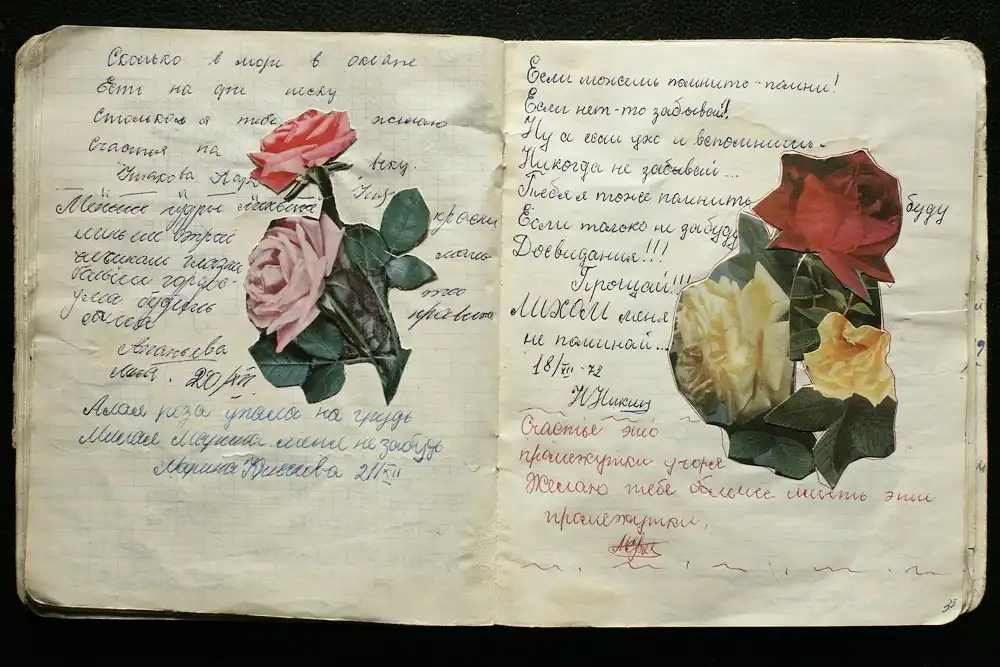 Сколько в море в океане
Есть на дне песку
Столько я тебе желаю
Счастья на веку.
Меньше пудры краски
меньше
глазки
больше
ума будешь нравится
Ананьева
20/XII
Алая роза упала на грудь
Милая Марина меня не забудь
Марина 21/XII
Если можешь помнить-помни!
Если нет-то забывай!
Ну а если уж и вспомнишь-
Никогда не забывай...
Тебя я тоже помнить буду
Если только не забуду
Досвидания!!!
Прощай!!!
ЛИХОМ меня
не поминай...
18/XII-72
Счастье это
промежутки у горя
Желаю тебе больше иметь эти
промежутки,